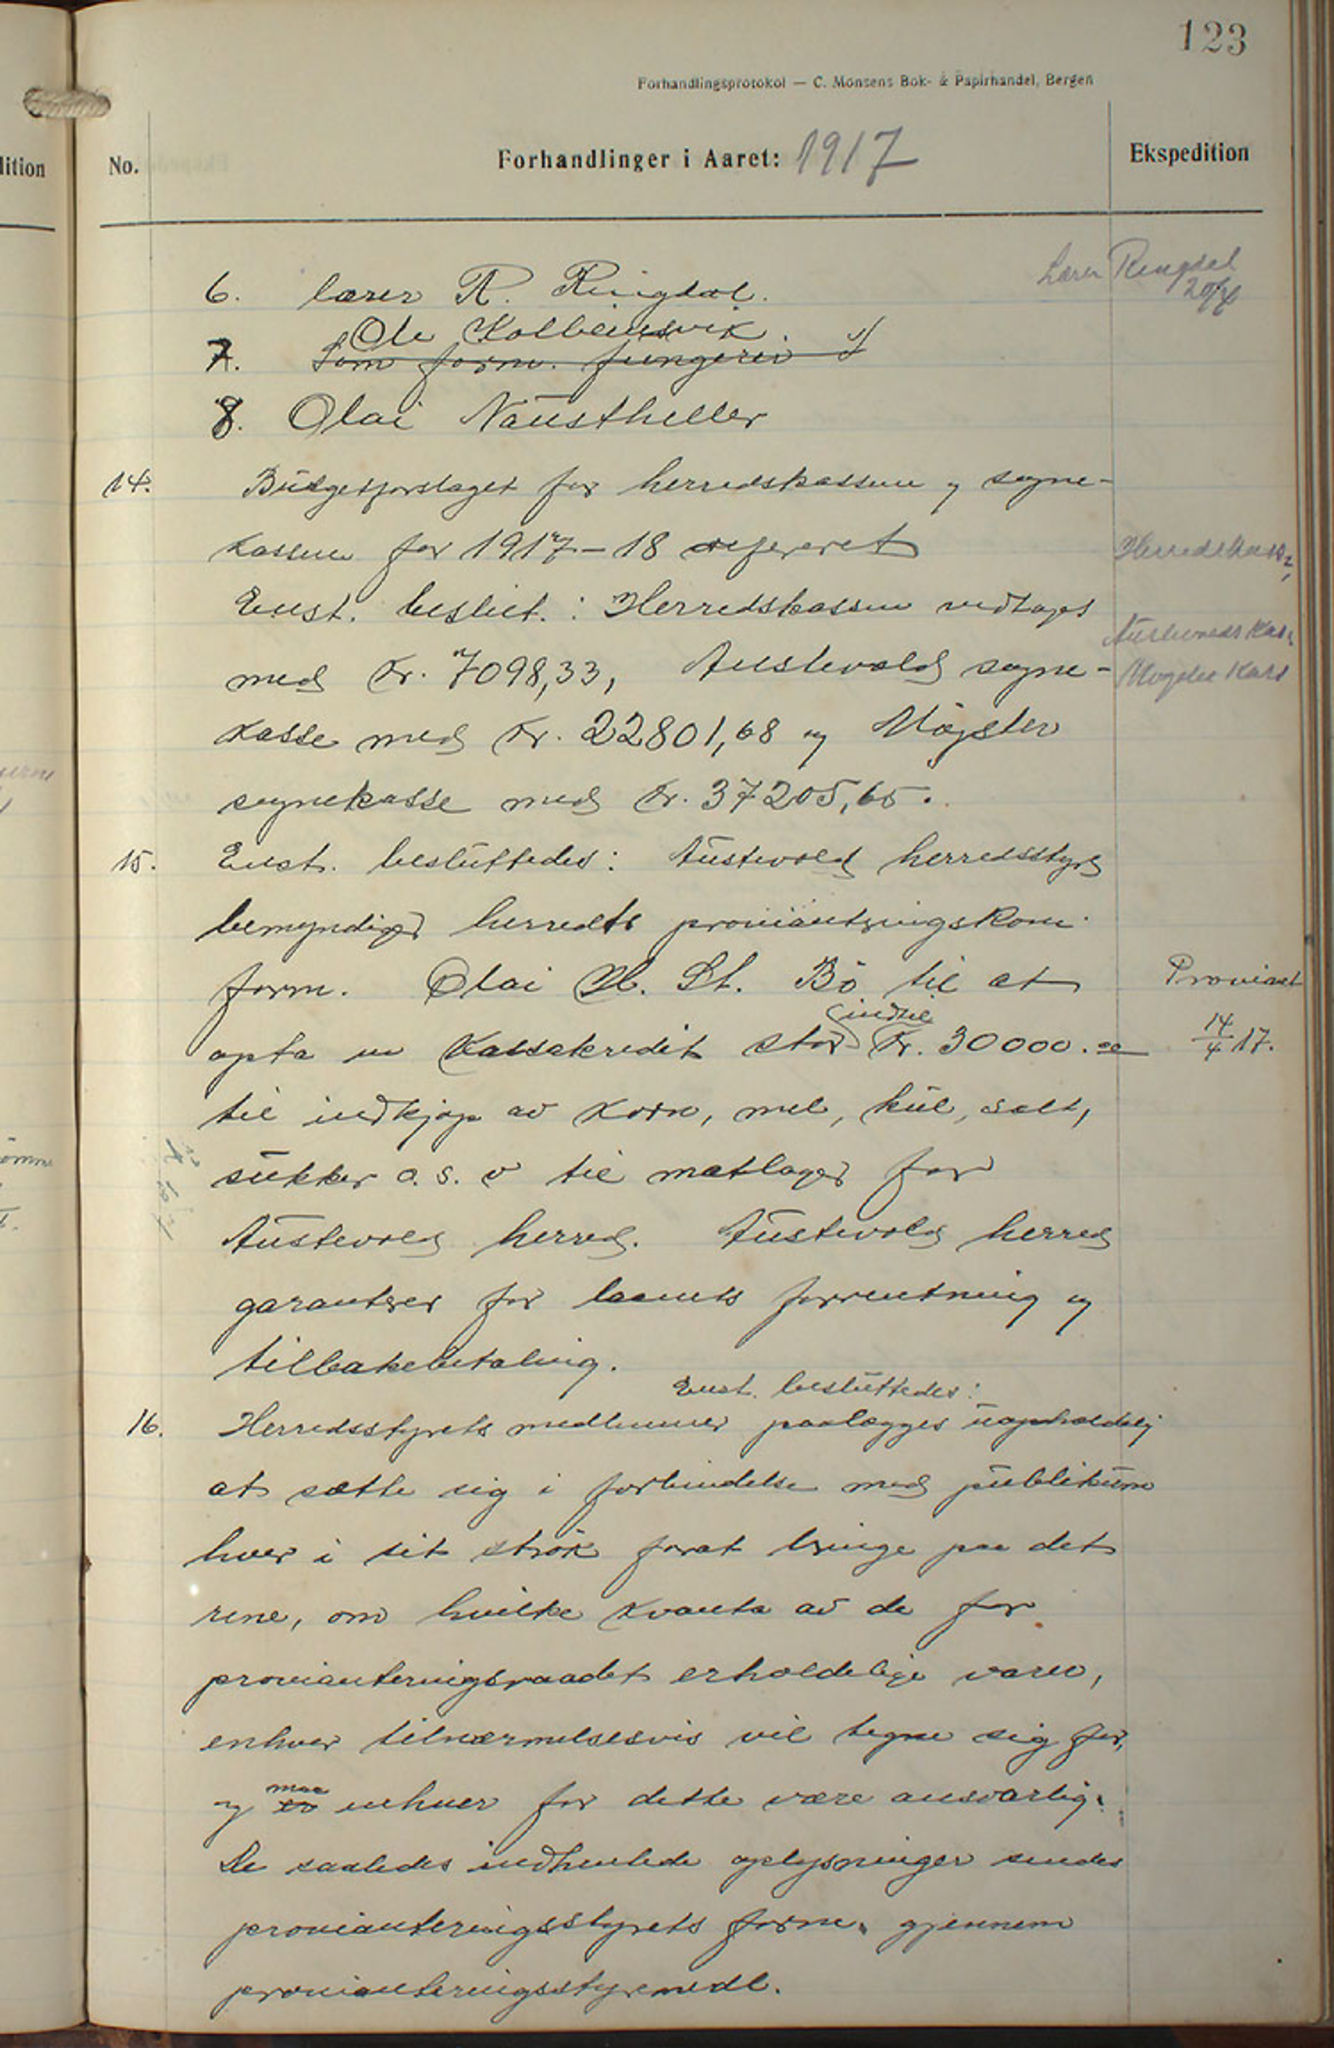 123
Forhandlingsprotokol — C. Monsens Bok- & Papirhandel, Bergen
lition
No.
Forhandlinger i Aaret: 1917
Ekspedition
6. lærer R. Ringdal.
Lærer Ringdal
Ole Kolbeinsvik
7. Som form. fungerer
8. Olai Naustheller
14. Budgetforslaget for herredskassen og sogne-
kassen for 1917-18 refereret
Enst. beslut.: Herredskassen vedtages
med Kr. 7098,33, Austevold sogne-
kasse med Kr. 22801,68 og Møgster
sognekasse med Kr. 37205,65.
Herredskass
Møgster Kass
15. Enst. besluttedes: Austevold herredsstyre
bemyndiger herredets provianteringskom.
form. Olai H. St. Bö til at
indtil
opta en Kassakredit stor Kr. 30000.00
Proviant
14/4 17.
til indkjøp av korn, mel, kul, salt,
sukker o.s.v til matlager for
Austevold herred. Austevold herred
garanterer for laanets forrentning og
tilbakebetaling.
Enst. besluttedes:
16. Herredsstyrets medlemmer paalægges uopholdelig
at sætte sig i forbindelse med publikum
hver i sit strök forat bringe paa det
rene, om hvilke kvanta av de for
provianteringsraadet erholdelige varer,
enhver tilnærmelsesvis vil tegne sig for,
maa
og er enhver for dette være ansvarlig.
De saaledes indhentede oplysninger sendes
provianteringsstyrets form. gjennem
provianteringsstyremedl.